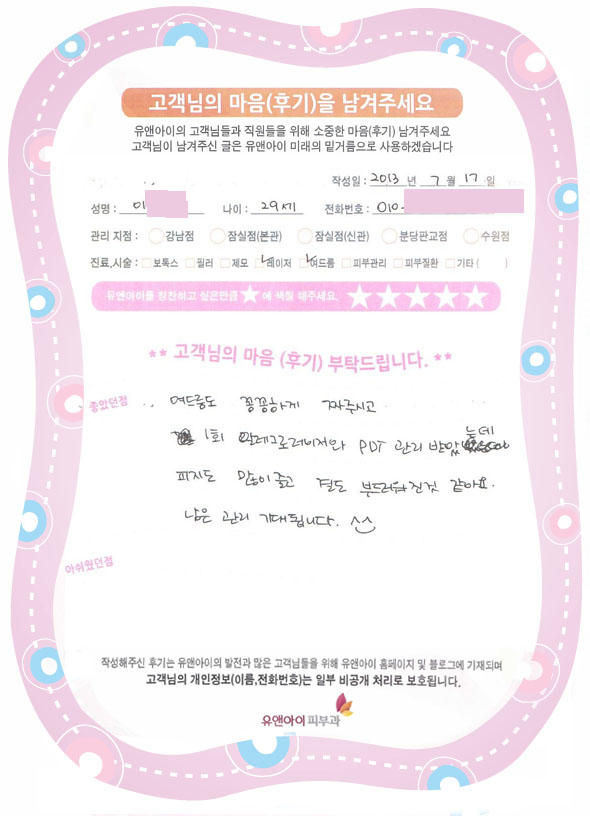 고객님의 마음(후기)을 남겨주세요
유앤아이의 고객님들과 직원들을 위해 소중한 마음(후기) 남겨주세요
고객님이 남겨주신 글은 유앤아이 미래의 밑거름으로 사용하겠습니다
작성일 : 2013 년 7 월 17 일
성명 : 이 나이 : 29세 전화번호 : 010-
관리 지점 : 강남점 잠실점(본관) 잠실점(신관) 분당판교점 수원점
진료,시술 : 보톡스 필러 제모 레이저 여드름 피부관리 피부질환 기타 ( )
유앤아이를 칭찬하고 싶은만큼 ★에 색칠 해주세요. ★★★★★
** 고객님의 마음 (후기) 부탁드립니다. **
좋았던점
여드름도 꼼꼼하게 짜주시고
1회 알레그로레이저와 PDT 관리 받았는데
피지도 많이 줄고 결도 부드러워진것 같아요.
남은 관리 기대됩니다. ^^
아쉬웠던점
작성해주신 후기는 유앤아이의 발전과 많은 고객님들을 위해 유앤아이 홈페이지 및 블로그에 기재되며
고객님의 개인정보(이름,전화번호)는 일부 비공개 처리로 보호됩니다.
유앤아이피부과